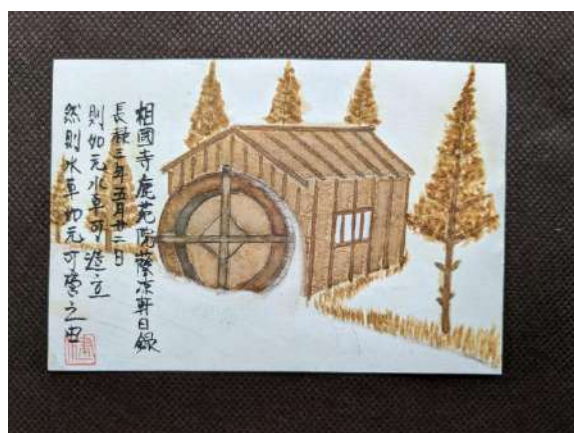 相國寺鹿苑院蔭凉軒日録
長禄三年五月廿二日
則如元水車可造立
然則水車如元可營之由